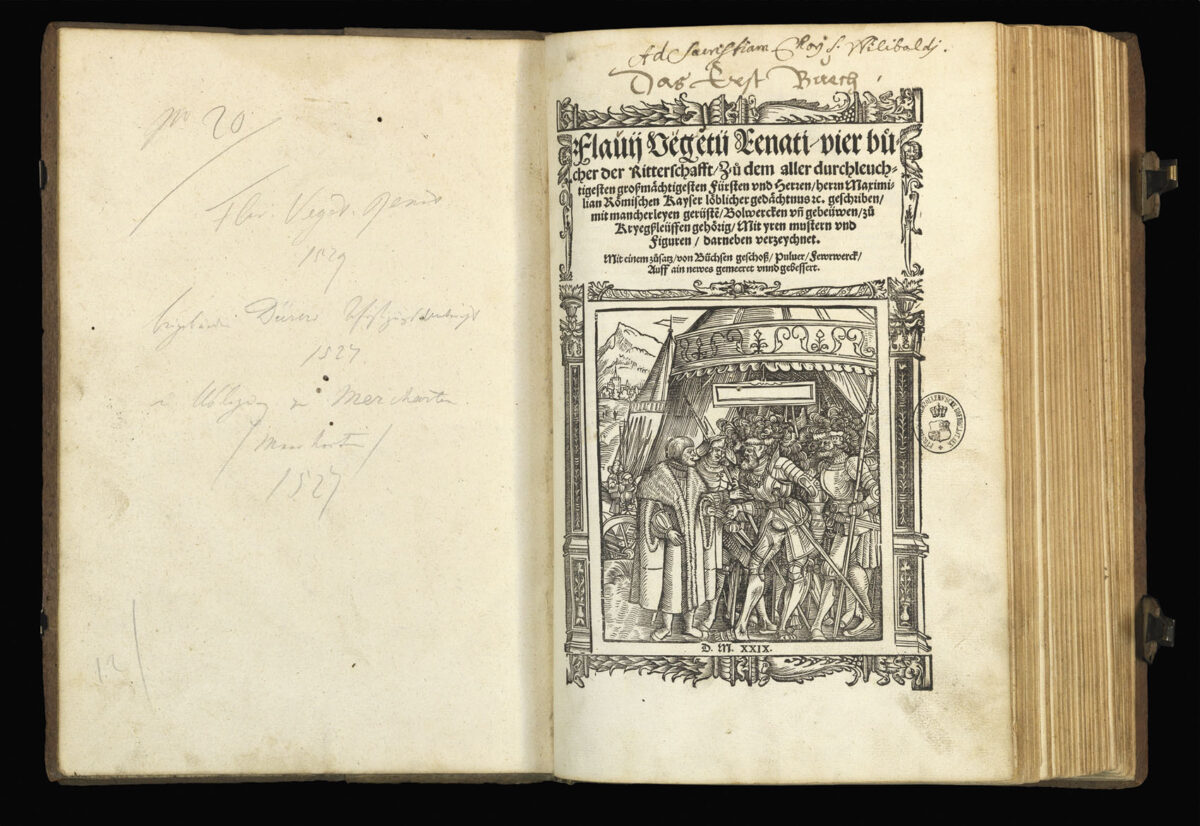 No 20
Flav. Veget. Renat
1529
Dürers
1527
Merckarten
1527
12
Ad Sacristiam S. Wilibaldj.
Das Erst Buech
Flauij Vegetij Renati / vier bů-
cher der Ritterschafft / Zů dem aller durchleuch-
tigesten großmächtigesten Fürsten vnd Herren / herrn Maximi-
lian Römischen Kayser löblicher gedächtnus ꝛc. geschriben /
mit mancherleyen gerüstē / Bolwercken vñ gebeüwen / zů
Kryegßleüffen gehörig / Mit yren mustern vnd
Figuren / darneben verzeychnet.
Mit einem zůsatz / von Büchsen geschoß / Puluer / Fewrwerck /
Auff ain newes gemeeret vnnd gebessert.
D. M. XXIX.